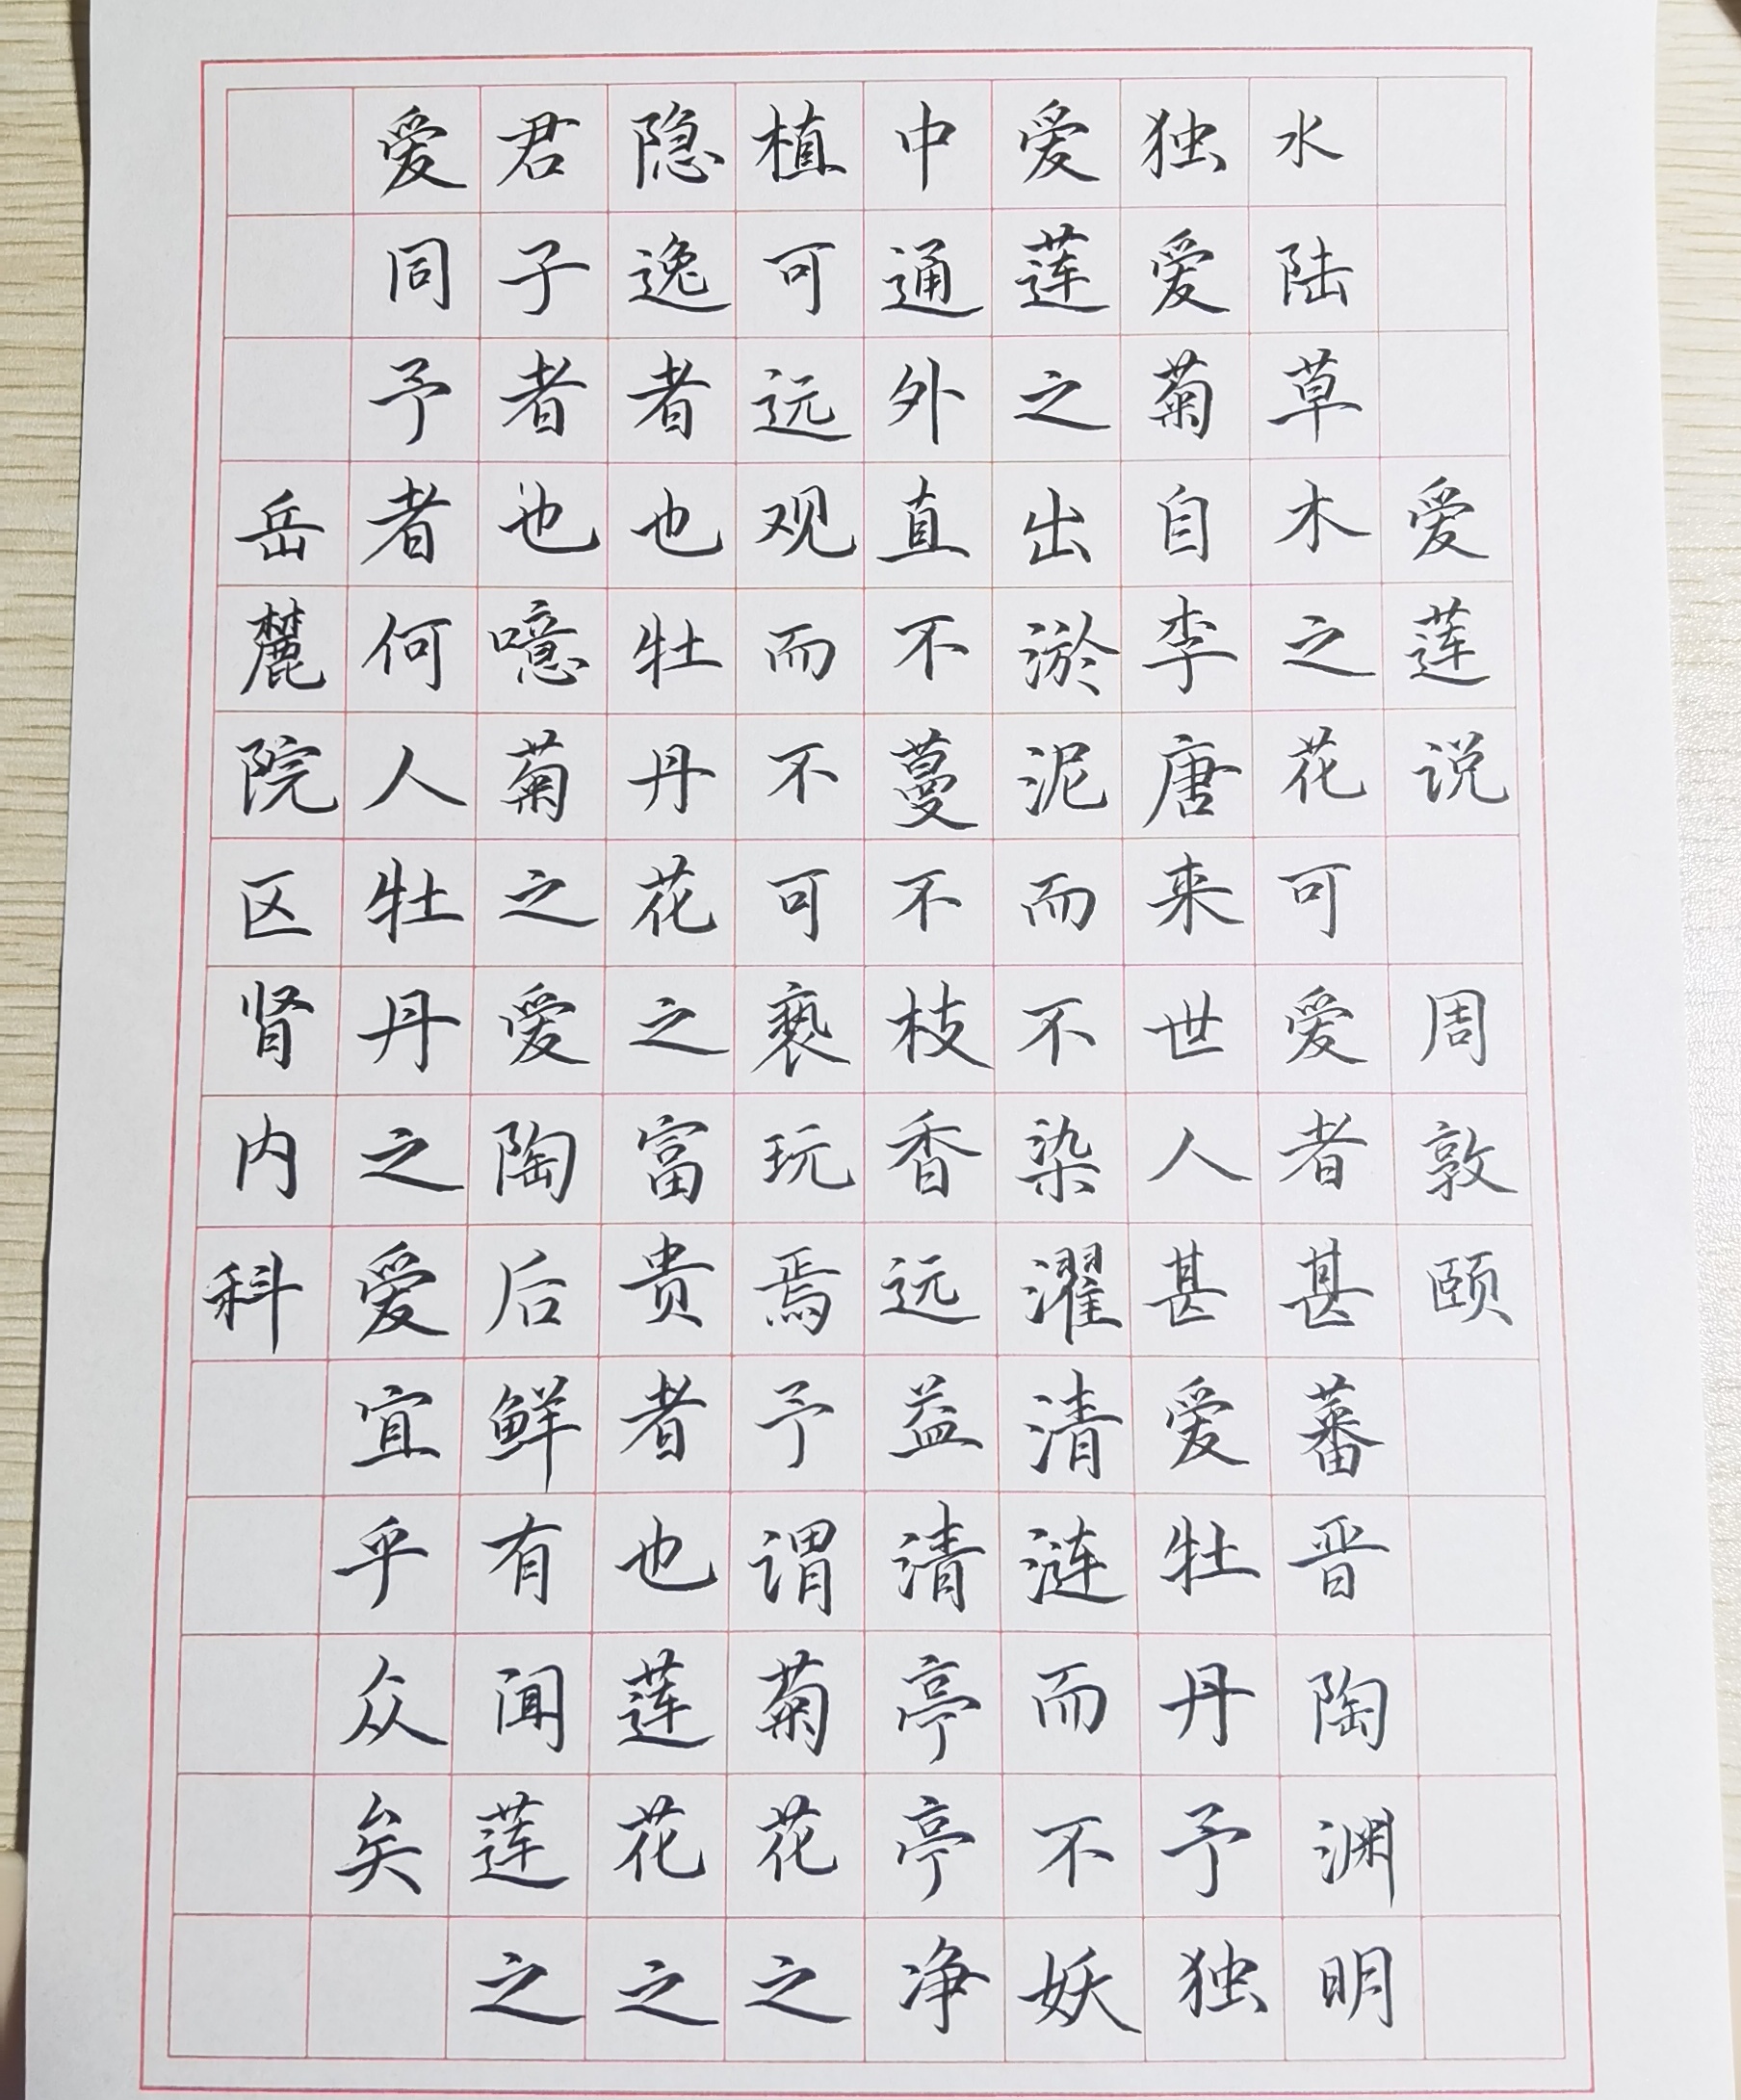 爱莲说 周敦颐
水陆草木之花可爱者甚蕃晋陶渊明
独爱菊自李唐来世人甚爱牡丹予独
爱莲之出淤泥而不染濯清涟而不妖
中通外直不蔓不枝香远益清亭亭净
植可远观而不可亵玩焉予谓菊花之
隐逸者也牡丹花之富贵者也莲花之
君子者也噫菊之爱陶后鲜有闻莲之
爱同予者何人牡丹之爱宜乎众矣
岳麓院区肾内科